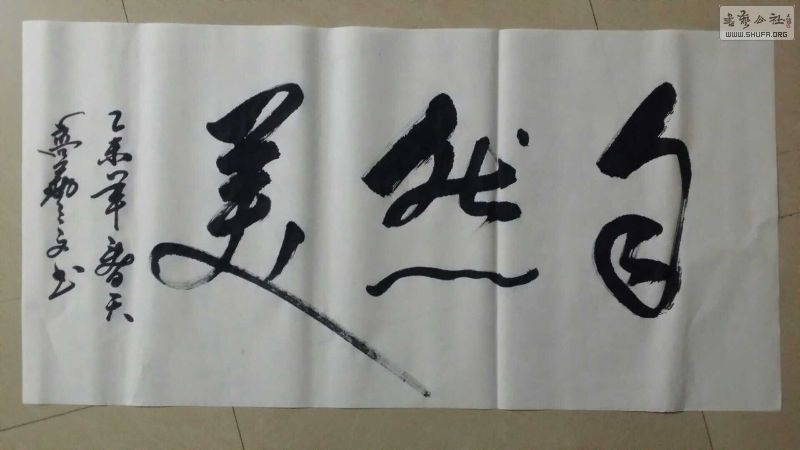 自然美
乙未年春天
书艺公社
WWW.SHUFA.ORG